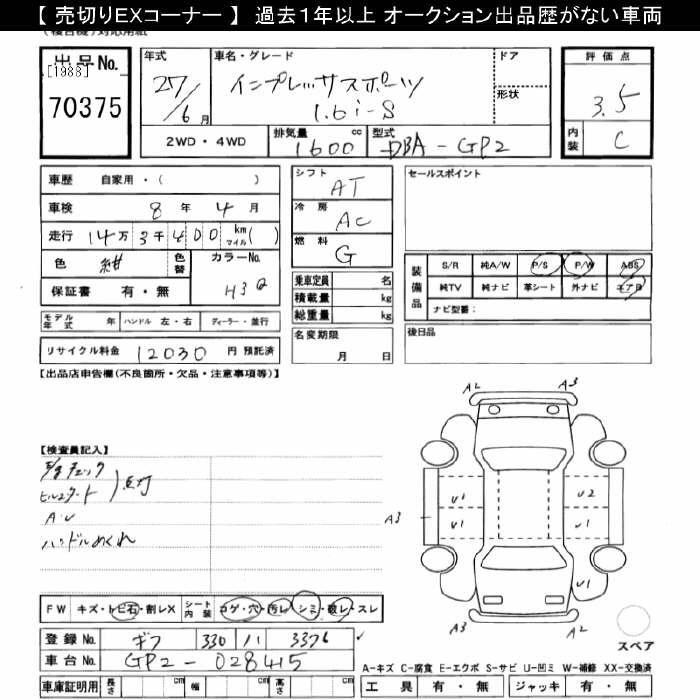 【 売切りEXコーナー 】 過去１年以上 オークション出品歴がない車両
出品No.
[1988]
70375
年式
27/6月
車名・グレード
インプレッサスポーツ
1.6i-S
ドア
形状
評価点
3.5
内装 C
2WD・4WD
排気量 1600 cc
型式 DBA-GP2
車歴 自家用・( )
車検 8年 4月
走行 14万 3千 400 km マイル( )
色 紺 色替
カラーNo. H3Q
保証書 有・無
モデル年式 年 ハンドル 左・右 ディーラー・並行
リサイクル料金 12030 円 預託済
シフト AT
冷房 AC
燃料 G
乗車定員 名
積載量 kg
総重量 kg
名変期限
月 日
セールスポイント
装備品
S/R 純A/W P/S P/W ABS
純TV 純ナビ 革シート 外ナビ エアB
ナビ型番：
後日品
【出品店申告欄(不良箇所・欠品・注意事項等)】
【検査員記入】
点灯
ハンドルめくれ
A2 A3
U1 U2
A3 U1 U1
U1
A3 A2
スペア
FW キズ・トビ石・割レX シート内装 コゲ・穴・汚レ・シミ・破レ・スレ
登録No. ギフ 330 ハ 3376
車台No. GP2-028415
車庫証明用 長さ cm 幅 cm 高さ cm
A-キズ C-腐食 E-エクボ S-サビ U-凹ミ W-補修 XX-交換済
工具 有・無 ジャッキ 有・無